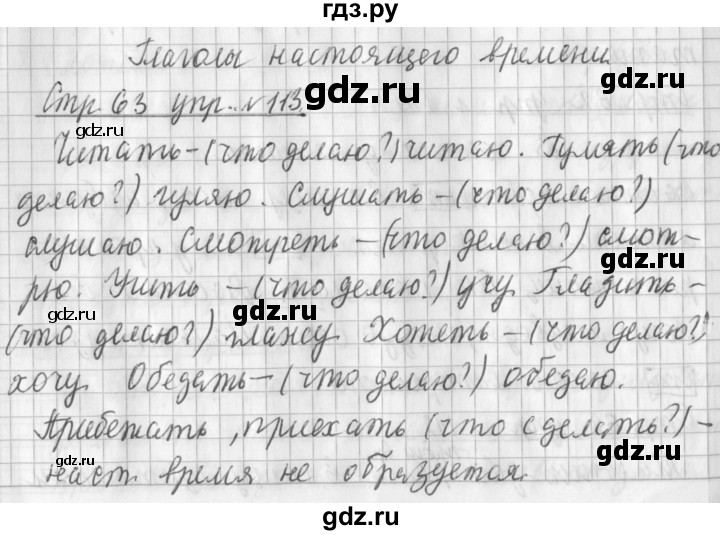 гдз.ру
Глаголы настоящего времени
Стр. 63 упр. №113.
Читать – (что делаю?) читаю. Гулять (что
делаю?) гуляю. Слушать – (что делаю?)
слушаю. Смотреть – (что делаю?) смот-
рю. Учить – (что делаю?) учу. Гладить –
(что делаю?) глажу. Хотеть – (что делаю?)
хочу. Обедать – (что делаю?) обедаю.
Прибежать, приехать (что сделать?) –
наст. время не образуется.
gdz.ru
gdz.ru
gdz.ru
gdz.ru
gdz.ru
gdz.ru
gdz.ru
gdz.ru
gdz.ru
gdz.ru
gdz.ru
gdz.ru
gdz.ru
gdz.ru